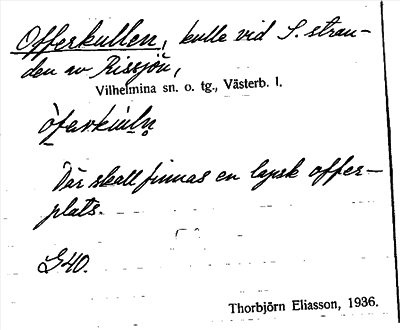 Offerkullen, kulle vid S. stran-
den av Rissjön,
Vilhelmina sn. o. tg., Västerb. l.
Där skall finnas en lapsk offer-
plats.
G40.
Thorbjörn Eliasson, 1936.